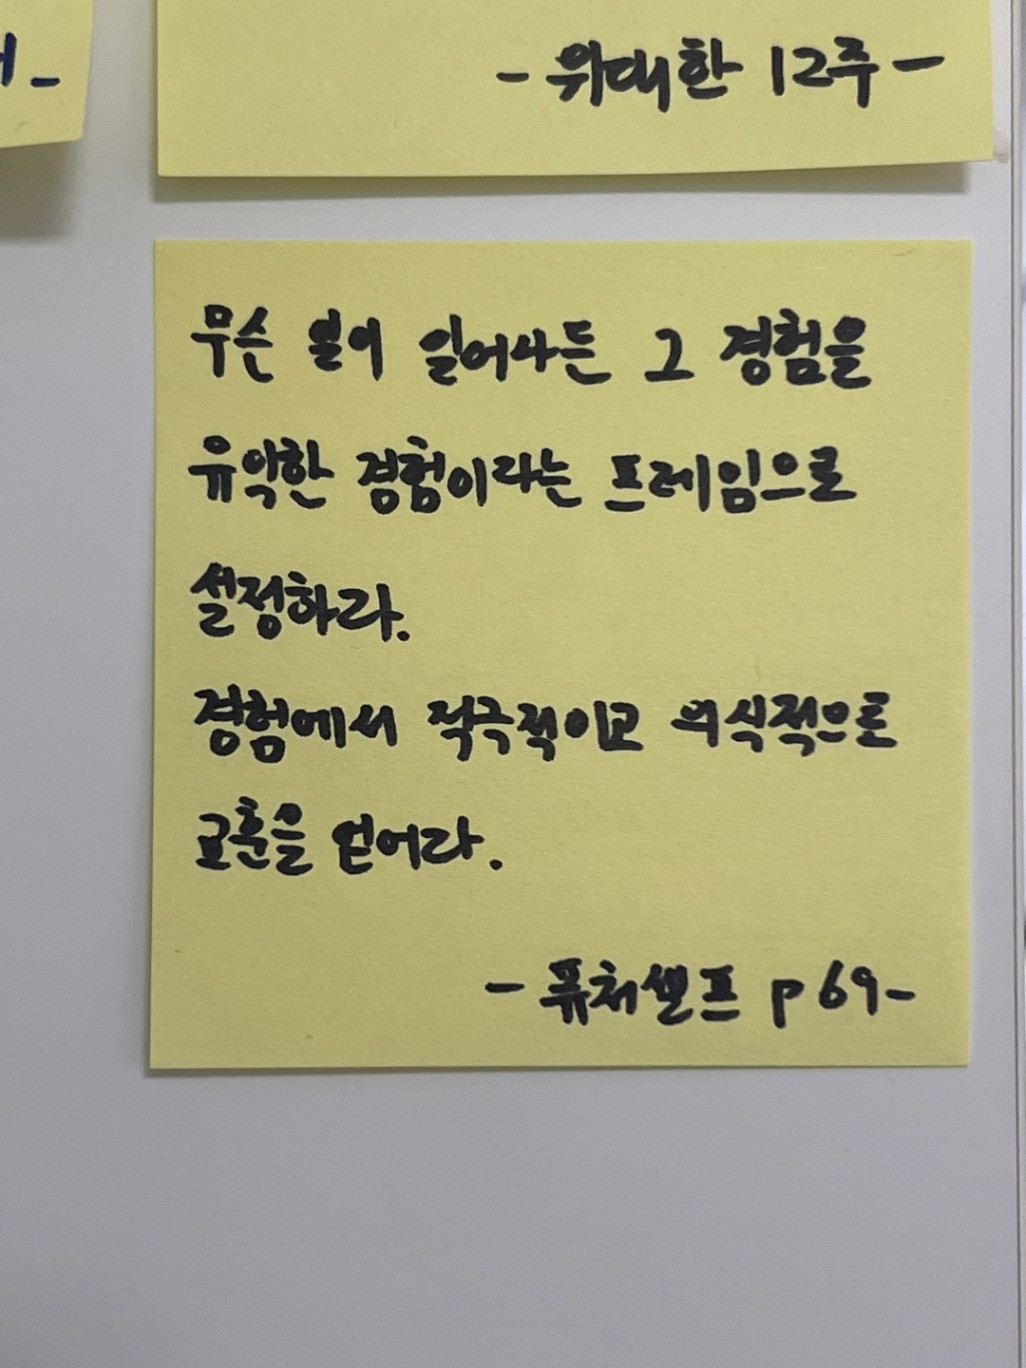 - 위대한 12주 -
무슨 일이 일어나든 그 경험을
유익한 경험이라는 프레임으로
설정하라.
경험에서 적극적이고 의식적으로
교훈을 얻어라.
- 퓨처셀프 p 69 -